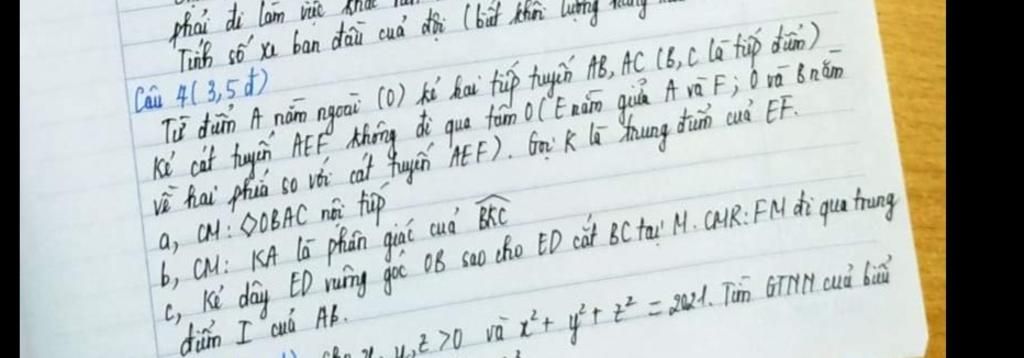 phải đi làm việc khác
Tính số xe ban đầu của đội (biết khối lượng hàng
Câu 4 (3,5đ)
Từ điểm A nằm ngoài (O) kẻ hai tiếp tuyến AB, AC (B, C là tiếp điểm)
Kẻ cát tuyến AEF không đi qua tâm O (E nằm giữa A và F; O và B nằm
về hai phía so với cát tuyến AEF). Gọi K là trung điểm của EF.
a, CM: ◇OBAC nội tiếp
b, CM: KA là phân giác của \widehat{BKC}
c, Kẻ dây ED vuông góc OB sao cho ED cắt BC tại M. CMR: FM đi qua trung
điểm I của AB.
y, z > 0 và x² + y² + z² = 2021. Tìm GTNN của biểu